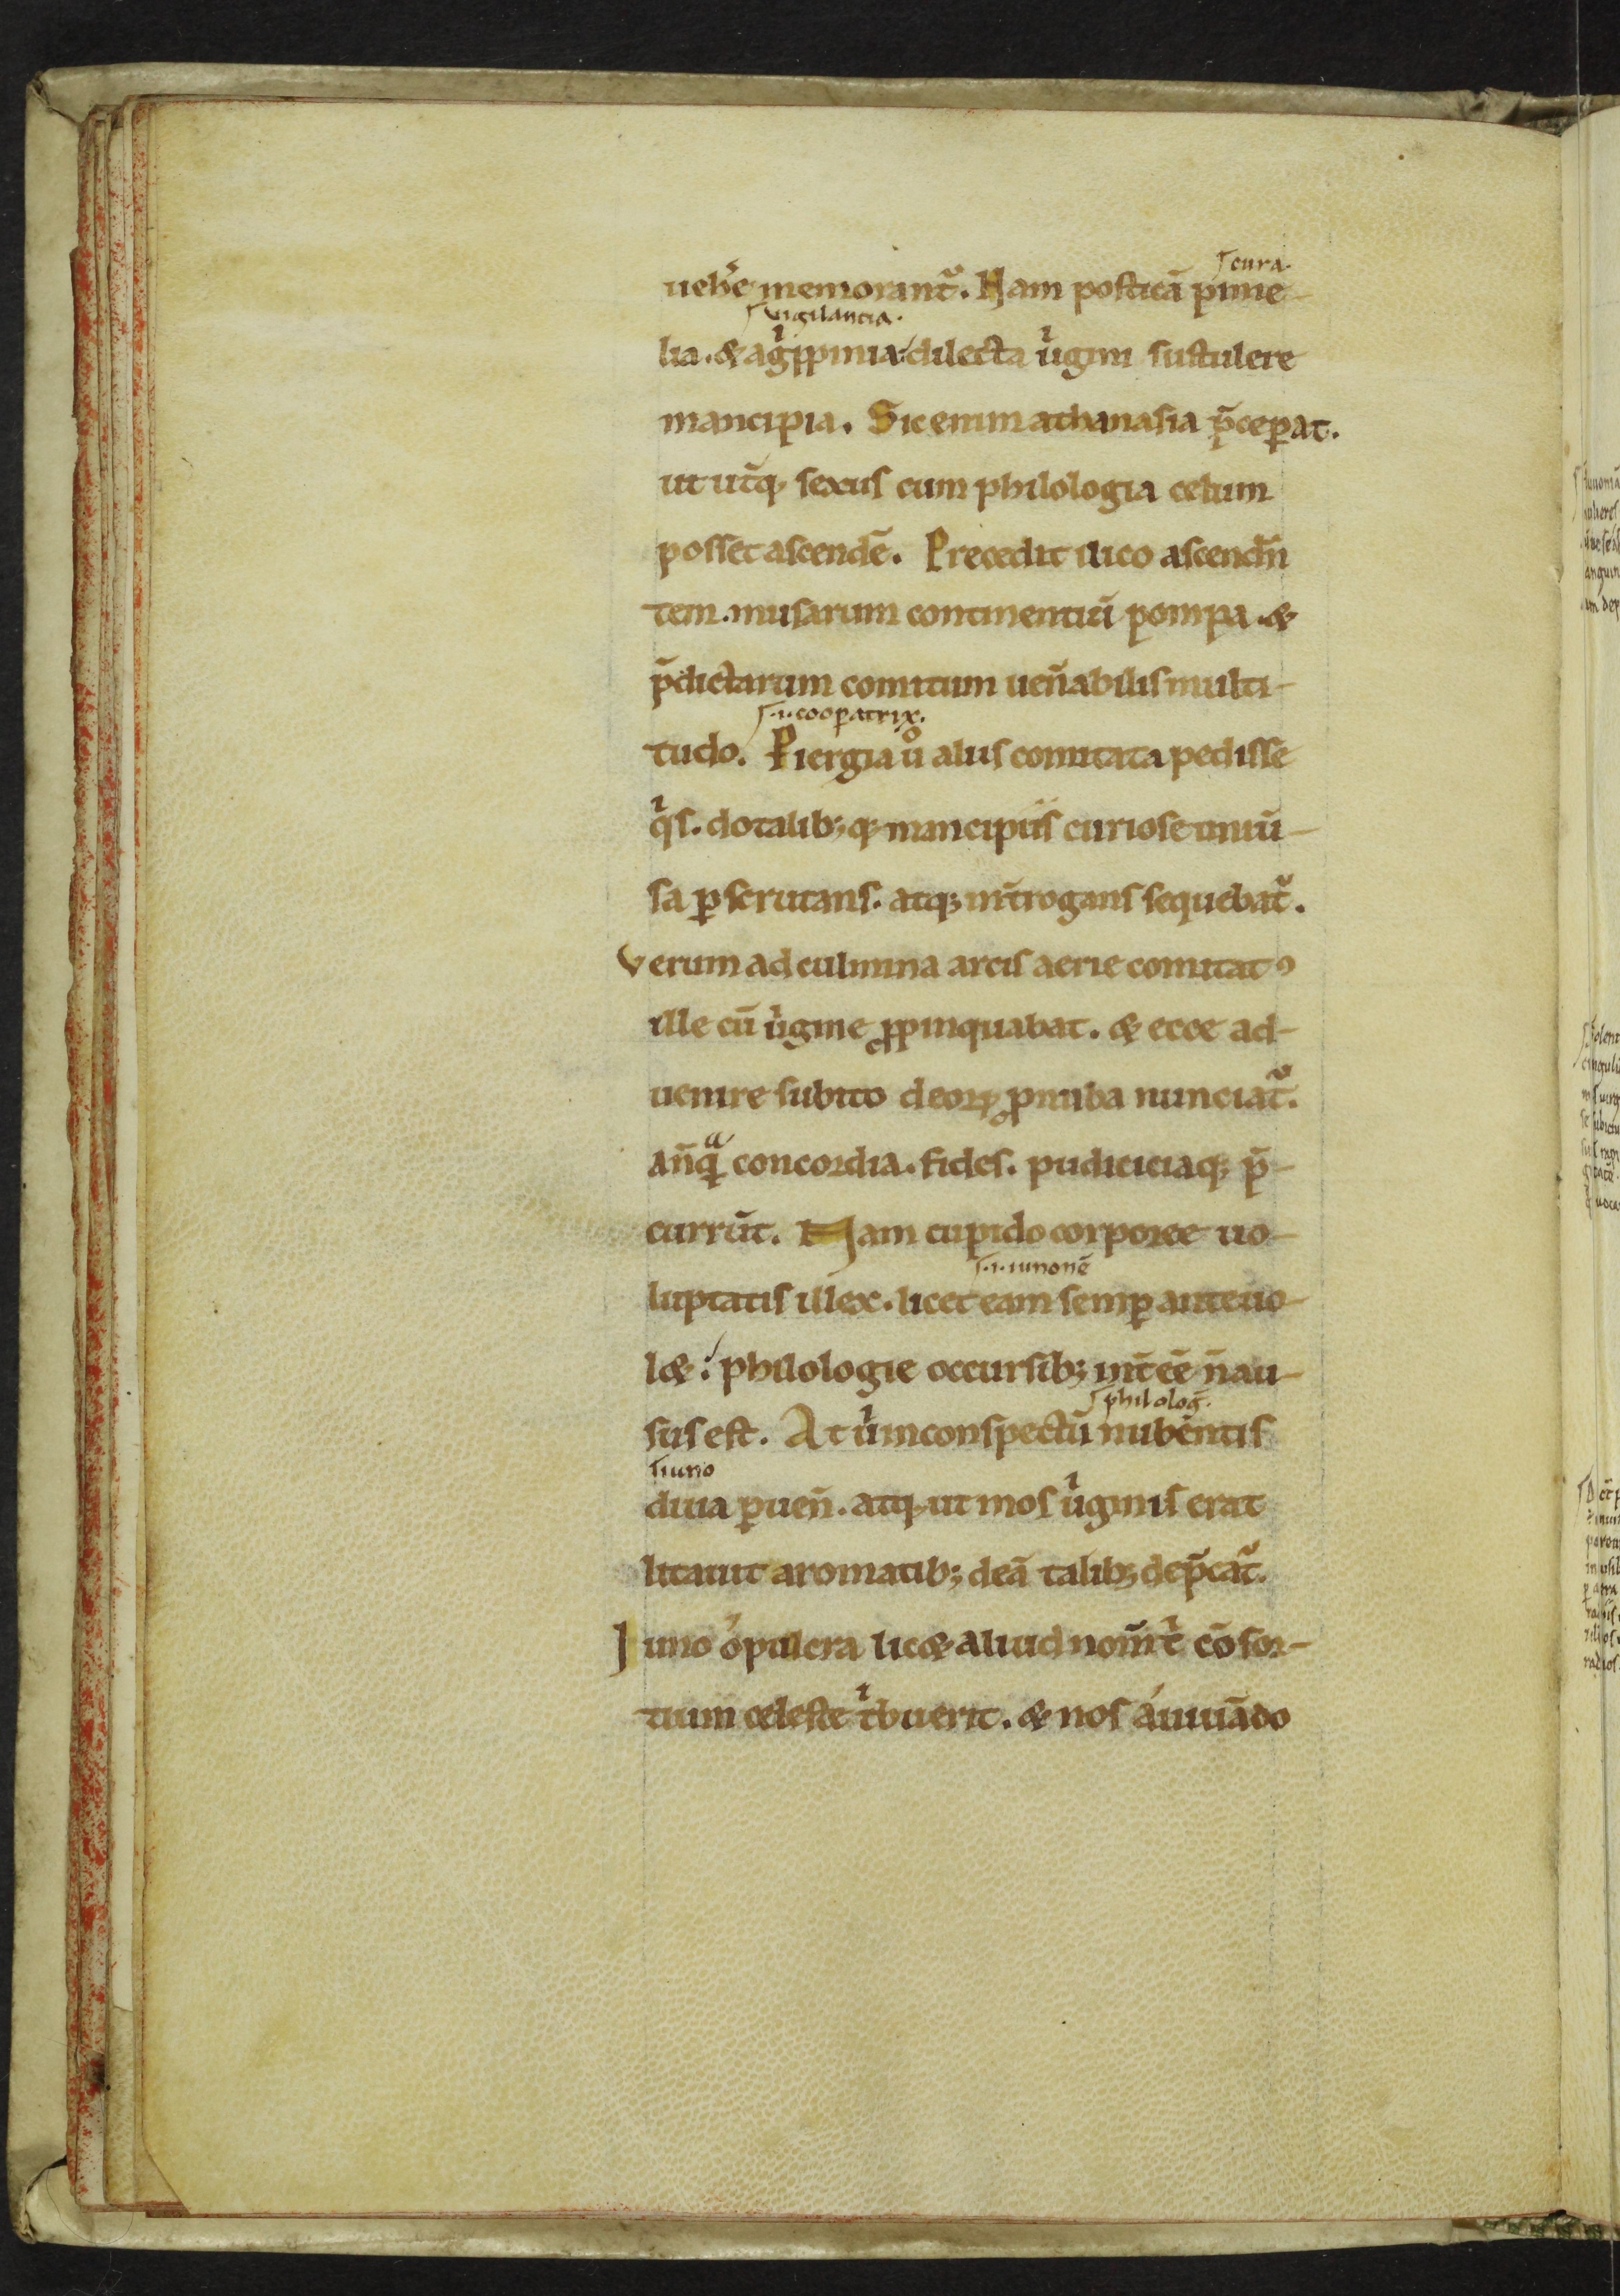 ſcura.
ueh̾e memorant᷑. Nam posticā pime-
ſvigilancia.
lia. & agͥppinia dilecta uͥgini sustulere
mancipia. Sic enim athanasia p̄cep̱at.
ut ut̄q; sexus cum philologia celum
posset ascend̄e. Precedit ilico ascend̄n
tem. musarum continentiū pompa. &
p̄dictarum comitum uen̄abilis multi-
ſ.i. coop̱atrix.
tudo. Piergia uͦ aliis comitata pedisse
qͥs. dotalib; q; mancipiis curiose uniū-
sa p̱scrutans. atq; int̄rogans sequebat᷑.
Verum ad culmina arcis aerie comitatꝰ
ille cū uͥgine ꝓpinquabat. & ecce ad-
uenire subito deoꝝ ꝓnuba nunciat᷑.
an̄qͣ concordia. fides. pudiciciaq; p̄-
currūt. Nam cupido corporee uo-
ſ.i. iunonē
luptatis illex. licet eam semp̱ anteuo-
l&: philologie occursib; int̄eē n̄ au-
ſphiloloḡ.
sus est. At uͥ inconspectū nubentis
ſiuno
diua p̱uen̄. atq; ut mos uͥginis erat
litauit aromatib; deā talib; dep̄cat᷑.
Iuno ó pulcra lic& aliud nom̄ tͥ cōsor-
tium celeste tͥbuerit. & nos aiuuādo